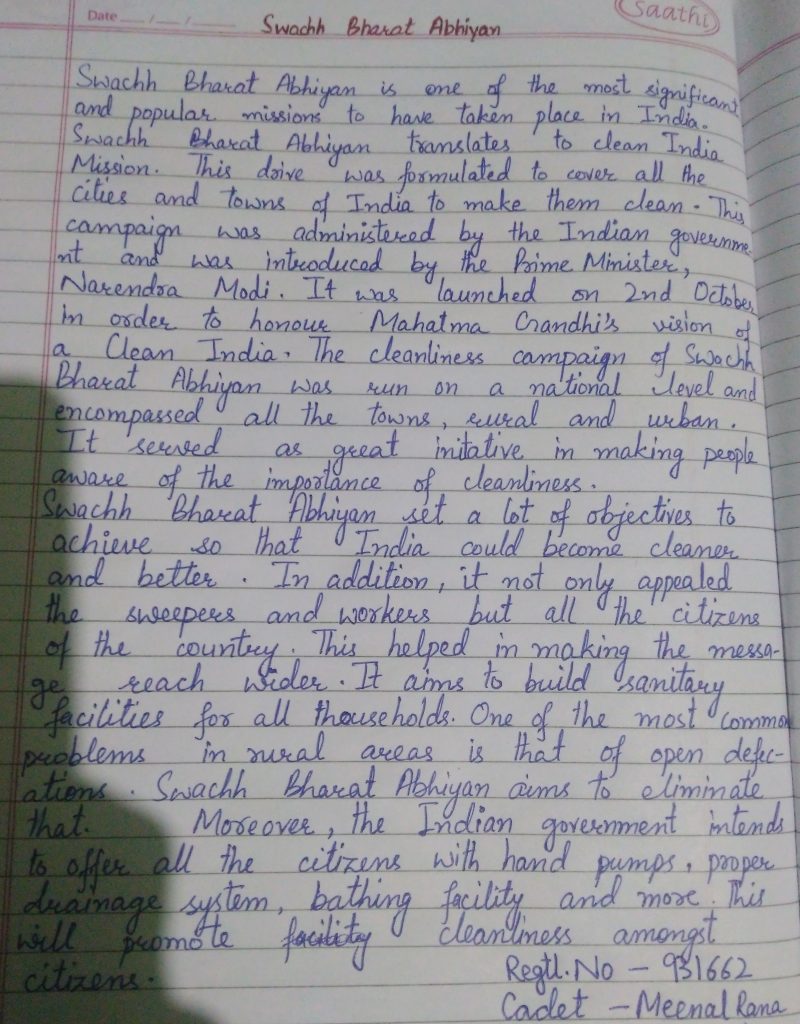 Saathi
Date __/__/__
Swachh Bharat Abhiyan
Swachh Bharat Abhiyan is one of the most significant
and popular missions to have taken place in India.
Swachh Bharat Abhiyan translates to clean India
Mission. This drive was formulated to cover all the
cities and towns of India to make them clean. This
campaign was administered by the Indian governme
nt and was introduced by the Prime Minister,
Narendra Modi. It was launched on 2nd October
in order to honour Mahatma Gandhi's vision of
a Clean India. The cleanliness campaign of Swachh
Bharat Abhiyan was run on a national level and
encompassed all the towns, rural and urban.
It served as great initative in making people
aware of the importance of cleanliness.
Swachh Bharat Abhiyan set a lot of objectives to
achieve so that India could become cleaner
and better. In addition, it not only appealed
the sweepers and workers but all the citizens
of the country. This helped in making the messa-
ge reach wider. It aims to build sanitary
facilities for all households. One of the most common
problems in rural areas is that of open defec-
ations. Swachh Bharat Abhiyan aims to eliminate
that. Moreover, the Indian government intends
to offer all the citizens with hand pumps, proper
drainage system, bathing facility and more. This
will promote facility cleanliness amongst
citizens.
Regtl. No - 931662
Cadet - Meenal Rana